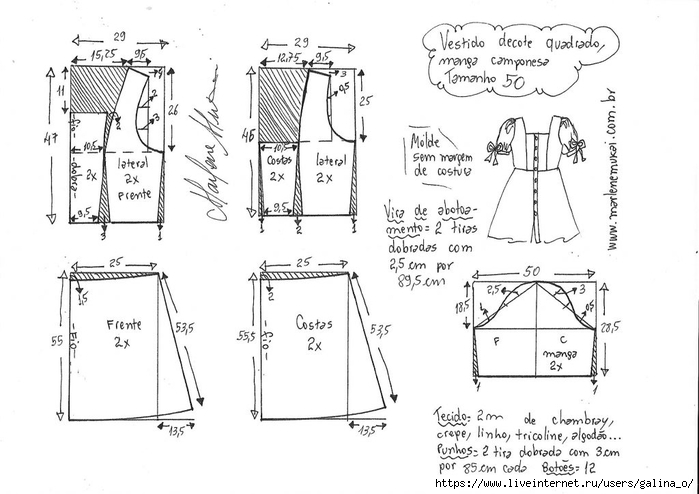 Vestido decote quadrado,
manga camponesa
Tamanho 50
29
15,25 9,5
4
11
2
3
2
26
47
10,5
-dobra- fio
2x
lateral
2x
Frente
9,5
3
1
29
12,75 9,5
3
0,5
25
46
10,5
Costas
2x
lateral
2x
9,5
1
2
1
Molde
sem margem
de costura
www.marlenemukai.com.br
Vira de abotoa-
mento= 2 tiras
dobradas com
2,5cm por
89,5cm
25
1,5
55
Fio
Frente
2x
53,5
13,5
25
2
55,5
Fio
Costas
2x
53,5
13,5
50
2,5
3
18,5
1
0,5
28,5
F
C
manga
2x
1
1
Tecido= 2m de chambray,
crepe, linho, tricoline, algodão...
Punhos= 2 tira dobrada com 3cm
por 85cm cada Botões= 12
https://www.liveinternet.ru/users/galina_o/